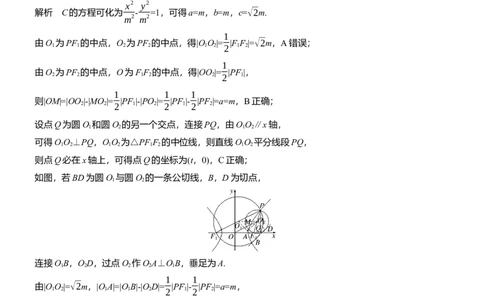 解析　C的方程可化为x²/m²-y²/m²=1，可得a=m，b=m，c=√2m.
由O₁为PF₁的中点，O₂为PF₂的中点，得|O₁O₂|=1/2|F₁F₂|=√2m，A错误；
由O₂为PF₂的中点，O为F₁F₂的中点，得|OO₂|=1/2|PF₁|，
则|OM|=|OO₂|-|MO₂|=1/2|PF₁|-|PO₂|=1/2|PF₁|-1/2|PF₂|=a=m，B正确；
设点Q为圆O₁和圆O₂的另一个交点，连接PQ，由O₁O₂∥x轴，
可得O₁O₂⊥PQ，O₁O₂为△PF₁F₂的中位线，则直线O₁O₂平分线段PQ，
则点Q必在x轴上，可得点Q的坐标为(t，0)，C正确；
如图，若BD为圆O₁与圆O₂的一条公切线，B，D为切点，
y
P
M
O₁
D
F₁ O A x
B
连接O₁B，O₂D，过点O₂作O₂A⊥O₁B，垂足为A.
由|O₁O₂|=√2m，|O₁A|=|O₁B|-|O₂D|=1/2|PF₁|-1/2|PF₂|=a=m，